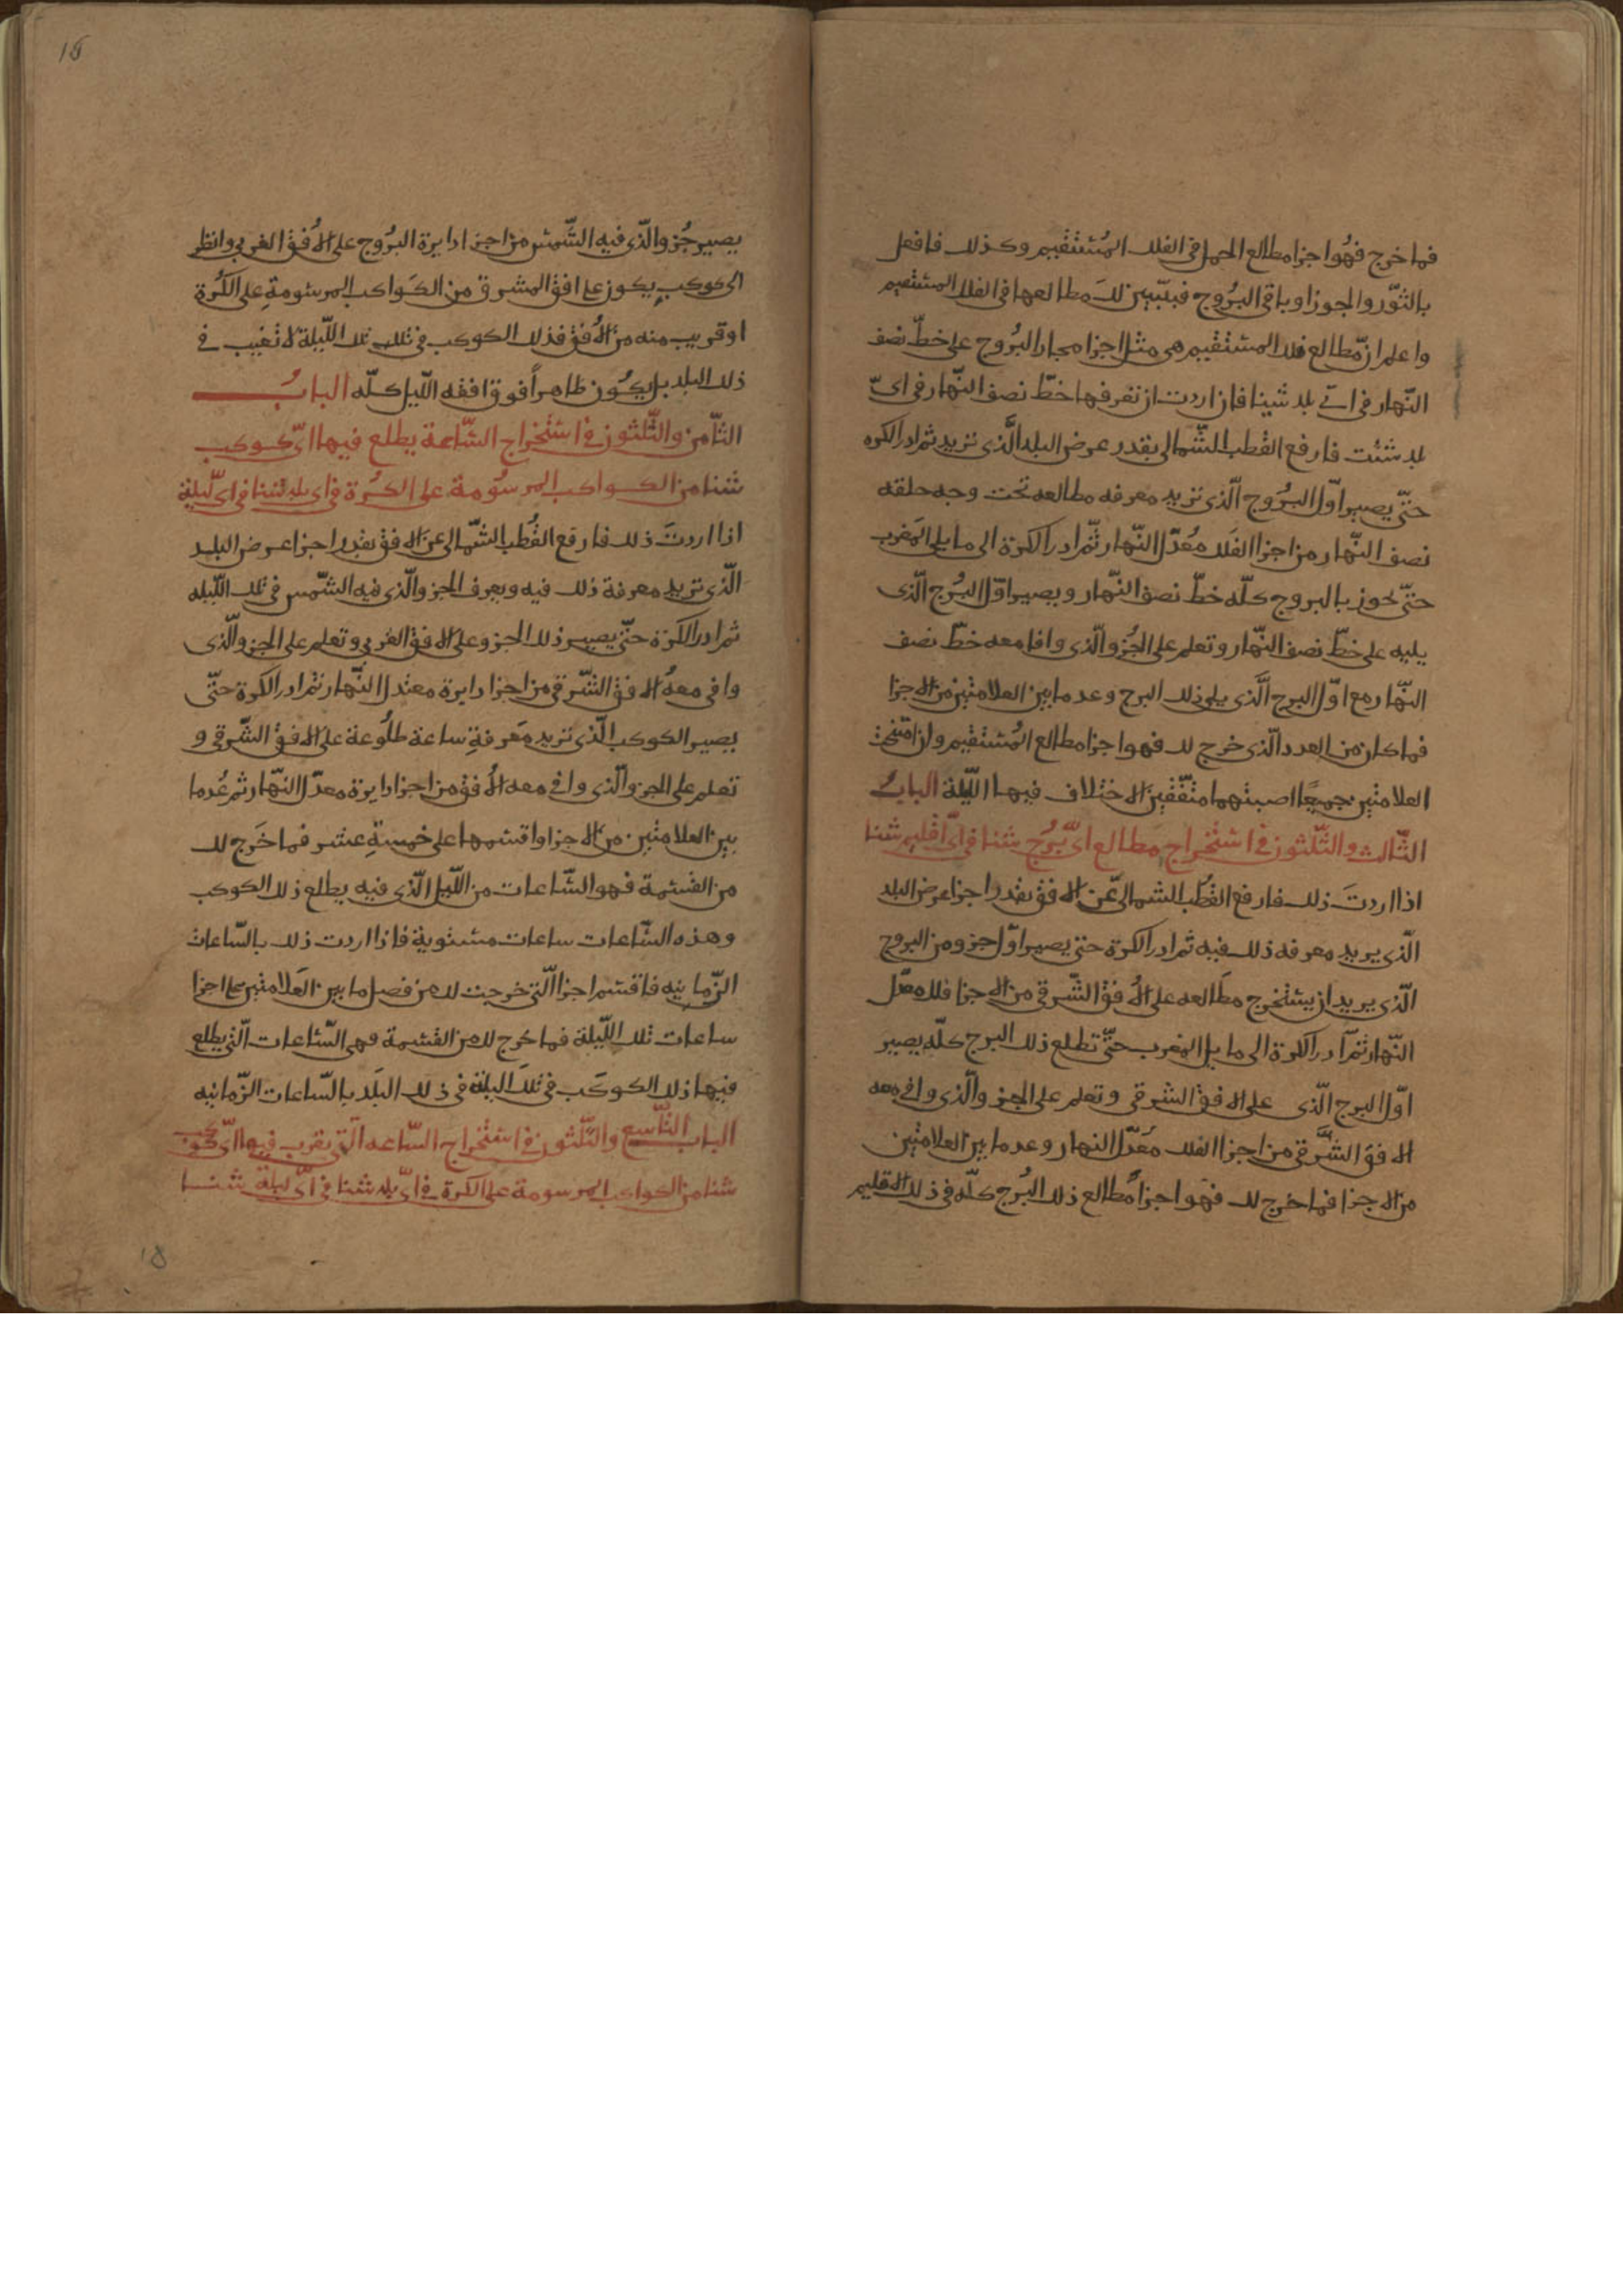 فما خرج فهُوا جزا مطالع الحمل في الفلك المُستقيم وكذلك فافعل
بالثّور والجوزا وباقي البرُوج فيتبيّن لكَ مطالعها في الفلك المستقيم
واعلم انّ مطالع فلك المستقيم هي مثل اجزا مجاز البرُوج على خطّ نصف
النّهار في ايّ بلد شينا فان اردت ان تعرفها خطّ نصف النّهار في ايّ
بلد شئت فارفع القطب الشّمالي بقدر عرض البلد الّذي تريد ثم ادر الكره
حتّى يصير اوّل البرُوج الّذي تريد معرفه مطالعه تحت وجه حلقه
نصف النّهار من اجزا الفلك مُعَدّل النّهار ثمّ ادر الكرة الى ما يلي المَغرب
حتّى تجوز بالبروج كلّه خطّ نصف النّهار ويصير اوّل البُرج الّذي
يليه على خطّ نصف النّهار وتعلم على الجُزو الّذي وافا معه خطّ نصف
النّهار مع اوّل البرج الّذي يلي ذلك البرج وعد ما بين العلامتين من الاجزا
فما كان من العدد الّذي خرج لك فهوا جزا مطالع المُستقيم وان امتحنت
العلامتين جميعًا اصبتهما متّفقين لا اختلاف فيهما اللّيلة البابُ
الثّالث والثّلثون في استخراج مَطالع ايّ بُرج شئنا في ايّ اقليم شئنا
اذا اردتَ ذلك فارفع القُطب الشمالي عن الافق بقدر اجزا عرض البلد
الّذي يريد معرفه ذلك فيه ثم ادر الكرة حتى يصير اوّل جزو من البروج
الّذي يريد ان يستخرج مطالعه على الافُق الشّرقي من الاجزا فلك معدّل
النّهار ثمّ ادر الكرة الى ما يلي المغرب حتّى تطلع ذلك البرج كلّه يصير
اوّل البرج الّذي على الافق الشرقي وتعلم على الجزو الّذي وافى معه
الافق الشّرقي من اجزا الفلك معُدّل النهار وعد ما بين العلامتين
من الاجزا فما خرج لك فهَو اجزا مُطالع ذلك البُرج كلّه في ذلك الاقليم
15
يصير جُزو الّذي فيه الشّمس من اجزا دايرة البرُوج على الافُق الغربي وانظر
الى كوكب يكون على افق المشرق من الكَواكب المرسُومةِ على الكُرة
او قريب منه من الافُق فذلك الكوكب في تلك تلك اللّيلة لا تغيب في
ذلك البلد بل يكُون ظاهراً فوق افقه اللّيل كلّه البابُ
الثّامن والثّلثون في استخراج السّاعة يطلع فيها ايّ كوكب
شئنا من الكواكب المرسوُمة على الكرُة في اي بلد شئنا في ايّ ليلة
اذا اردتَ ذلك فارفع القُطب الشّمالي عن الافق بقدر اجزا عرض البلد
الّذي تريد معرفة ذلك فيه ويعرف الجزو الّذي فيه الشّمس في تلك اللّيله
ثم ادر الكرة حتّى يصير ذلك الجزو على الافق الغربي وتعلم على الجزو الّذي
وافى معهُ الافق الشّرقي من اجزا دايرة معتدل النّهار ثم ادر الكرة حتّى
يصير الكوكب الّذي تريد مَعرفةِ ساعة طلُوعة على الافق الشّرقي و
تعلم على الجزو الّذي وافى معه الافُق من اجزا دايرة معدّل النّهار ثم عُد ما
بين العلامتين من الاجزا واقسمها على خمسةِ عشر فما خَرج لك
من القسمة فهو السّاعات من اللّيل الّذي فيه يطلع ذلك الكوكب
وهذه السّاعات ساعات مستوية فاذا اردت ذلك بالسّاعات
الزّمانيه فاقسم اجزا الّتي خرجت لك من فصل ما بين العَلامتين على اجزا
ساعات تلك اللّيلة فما خرج لك من القسمة فهي السّاعات الّتي يطلع
فيها ذلك الكوكَب في تلكَ اليلة في ذلك البَلد بالسّاعات الزّمانيه
الباب التّاسع والثّلثون في استخراج السّاعه الّتي يغرب فيها ايّ كوكب
شئنا من الكواكب المرسومة على الكرة في ايّ بلد شئنا في ايّ ليلة شئنا
18